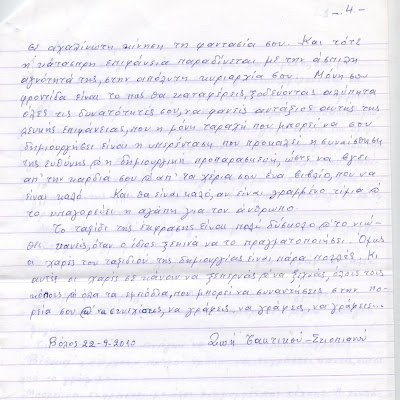 - 4 -
σε αχαλίνωτη κίνηση τη φαντασία σου. Και τότε
η κάτασπρη επιφάνεια παραδίνεται με την άσπιλη
αγνότητά της, στην απόλυτη κυριαρχία σου. Μόνη σου
φροντίδα είναι το πώς θα καταφέρεις, ξοδεύοντας αλύπητα
όλες τις δυνατότητές σου, να φανείς αντάξιος αυτής της
λευκής επιφάνειας, που η μόνη ταραχή που μπορεί να σου
δημιουργήσει είναι η υπερένταση που προκαλεί η συναίσθηση
της ευθύνης η δημιουργική προπαρασκευή, ώστε να βγει
απ' την καρδιά σου απ' τα χέρια σου ένα βιβλίο, που να
είναι καλό. Και θα είναι καλό, αν είναι γραμμένο τίμια
το υπαγορεύει η αγάπη για τον άνθρωπο.
Το ταξίδι της έκφρασης είναι πολύ δύσκολο το νιώ-
θει κανείς, όταν ο ίδιος ξεκινά να το πραγματοποιήσει. Όμως
οι χαρές του ταξιδιού της δημιουργίας είναι πάρα πολλές. Κι
αυτές οι χαρές σε κάνουν να ξεπερνάς να ξεχνάς, όλους τους
κόπους όλα τα εμπόδια, που μπορεί να συναντήσεις στην πο-
ρεία σου να συνεχίσεις, να γράφεις, να γράφεις, να γράφεις...
Βόλος 22-9-2010 Ζωή